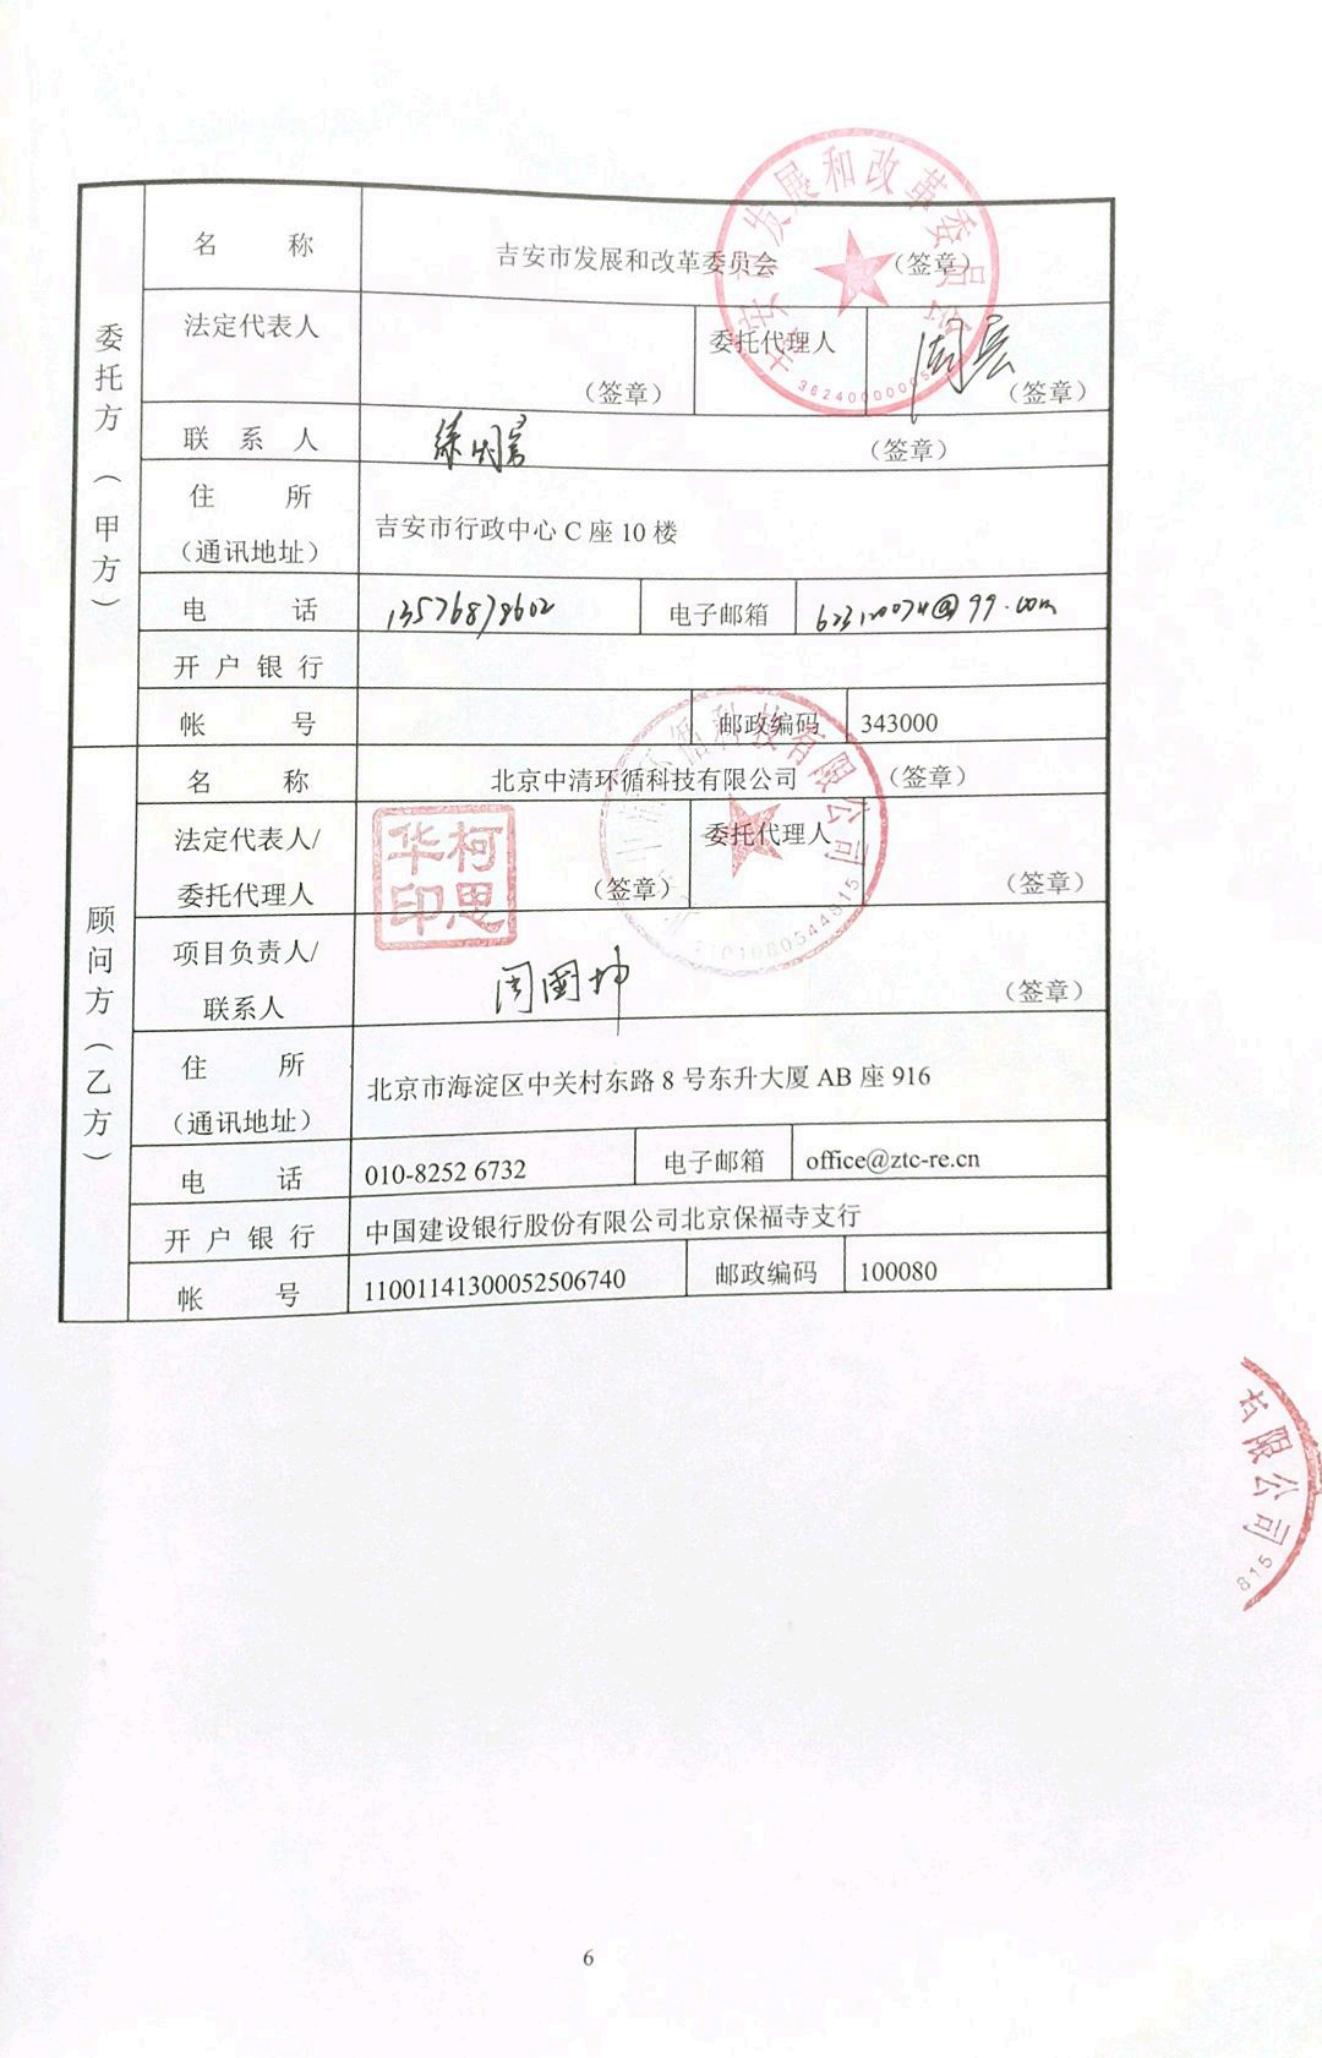 委托方（甲方）
名 称 吉安市发展和改革委员会 （签章）
法定代表人 （签章） 委托代理人 （签章）
联 系 人 （签章）
住 所
（通讯地址） 吉安市行政中心 C 座 10 楼
电 话 13576878602 电子邮箱
开 户 银 行
帐 号 邮政编码 343000
顾问方（乙方）
名 称 北京中清环循科技有限公司 （签章）
法定代表人/
委托代理人 （签章） 委托代理人 （签章）
柯思华印
项目负责人/
联系人 周国坤 （签章）
住 所
（通讯地址） 北京市海淀区中关村东路 8 号东升大厦 AB 座 916
电 话 010-8252 6732 电子邮箱 office@ztc-re.cn
开 户 银 行 中国建设银行股份有限公司北京保福寺支行
帐 号 11001141300052506740 邮政编码 100080
吉安市发展和改革委员会
环循科技有限公司
有限公司
815
6